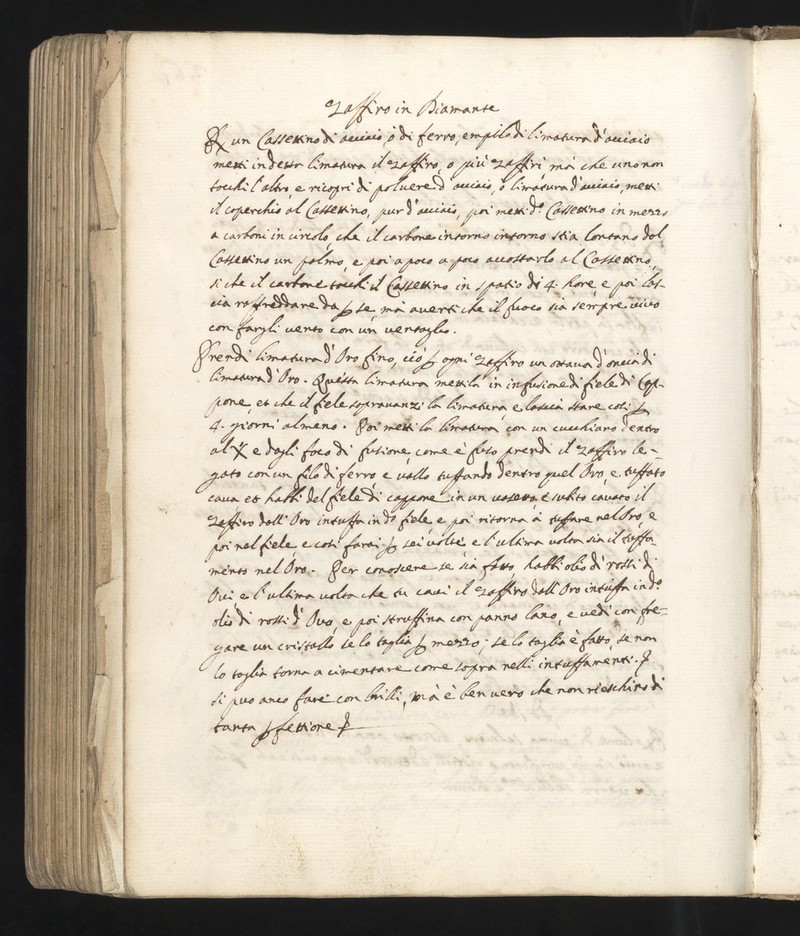 Zaffiro in Diamante
℞ un Cassettino di acciaio, ò di ferro, empilo di limatura d'acciaio
metti in detta limatura il Zaffiro, o più Zaffiri mà che uno non
tocchi l'altro, e ricopri di poluere d'acciaio, ò limatura d'acciaio, metti
il coperchio al Cassettino, pur d'acciaio, poi metti d.º Cassettino in mezzo
a carboni in circolo, che il carbone intorno intorno stia lontano dal
Cassettino un palmo, e poi a poco a poco accostarlo al Cassettino,
si che il carbone tocchi il Cassettino in spatio di 4. hore, e poi las-
cia raffreddare da ꝑ se, mà auerti che il fuoco sia sempre uiuo
con fargli uento con un uentaglio.
Prendi limatura d'Oro fino, ciò ꝑ ogni Zaffiro un ottaua d'oncia di
limatura d'Oro. Questa limatura mettila in infusione di fiele di Cap-
pone, et che il fiele soprauanzi la limatura, e lascia stare così ꝑ
4. giorni almeno. Poi metti la limatura con un cucchiaro dentro
al e dagli foco di fusione, come è fuso prendi il Zaffiro le-
gato con un filo di ferro e uallo tuffando dentro quel Oro, e tuffato
caua et habbi del fiele di cappone in un uasetto, e subito cauato il
Zaffiro dall'Oro intuffa in d.º fiele e poi ritorna à tuffare nel Oro, e
poi nel fiele, e così farai ꝑ sei uolte, e l'ultima uolta sia il tuffa-
mento nel Oro. Per conoscere se sia fatto habbi olio di rossi di
Oui e l'ultima uolta che tu caui il Zaffiro dall'Oro intuffa in d.º
olio di rossi d'Ouo, e poi struffina con panno lano, e uedi con fre-
gare un cristallo, se lo taglia ꝑ mezzo; se lo taglia è fatto, se non
lo taglia torna a cimentare come sopra nelli intuffamenti.
si puo anco fare con brilli, mà è ben uero che non rieschino di
tanta ꝑfettione